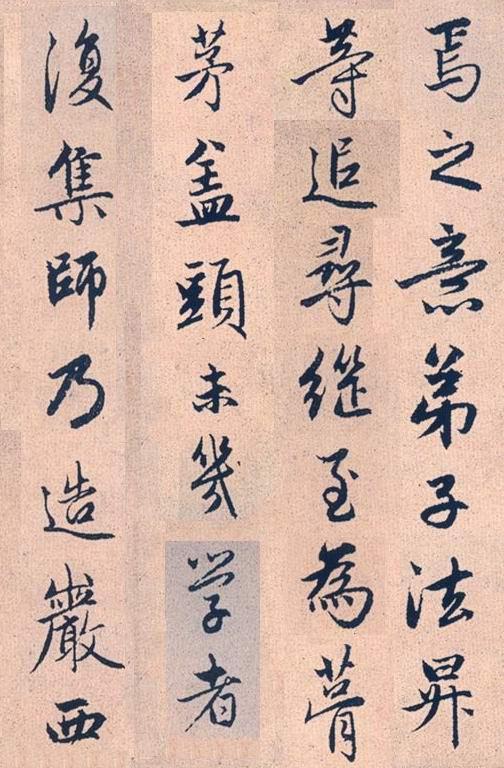 焉之意弟子法昇
等追尋継至為葺
茅盖頭未幾学者
復集師乃造巖西